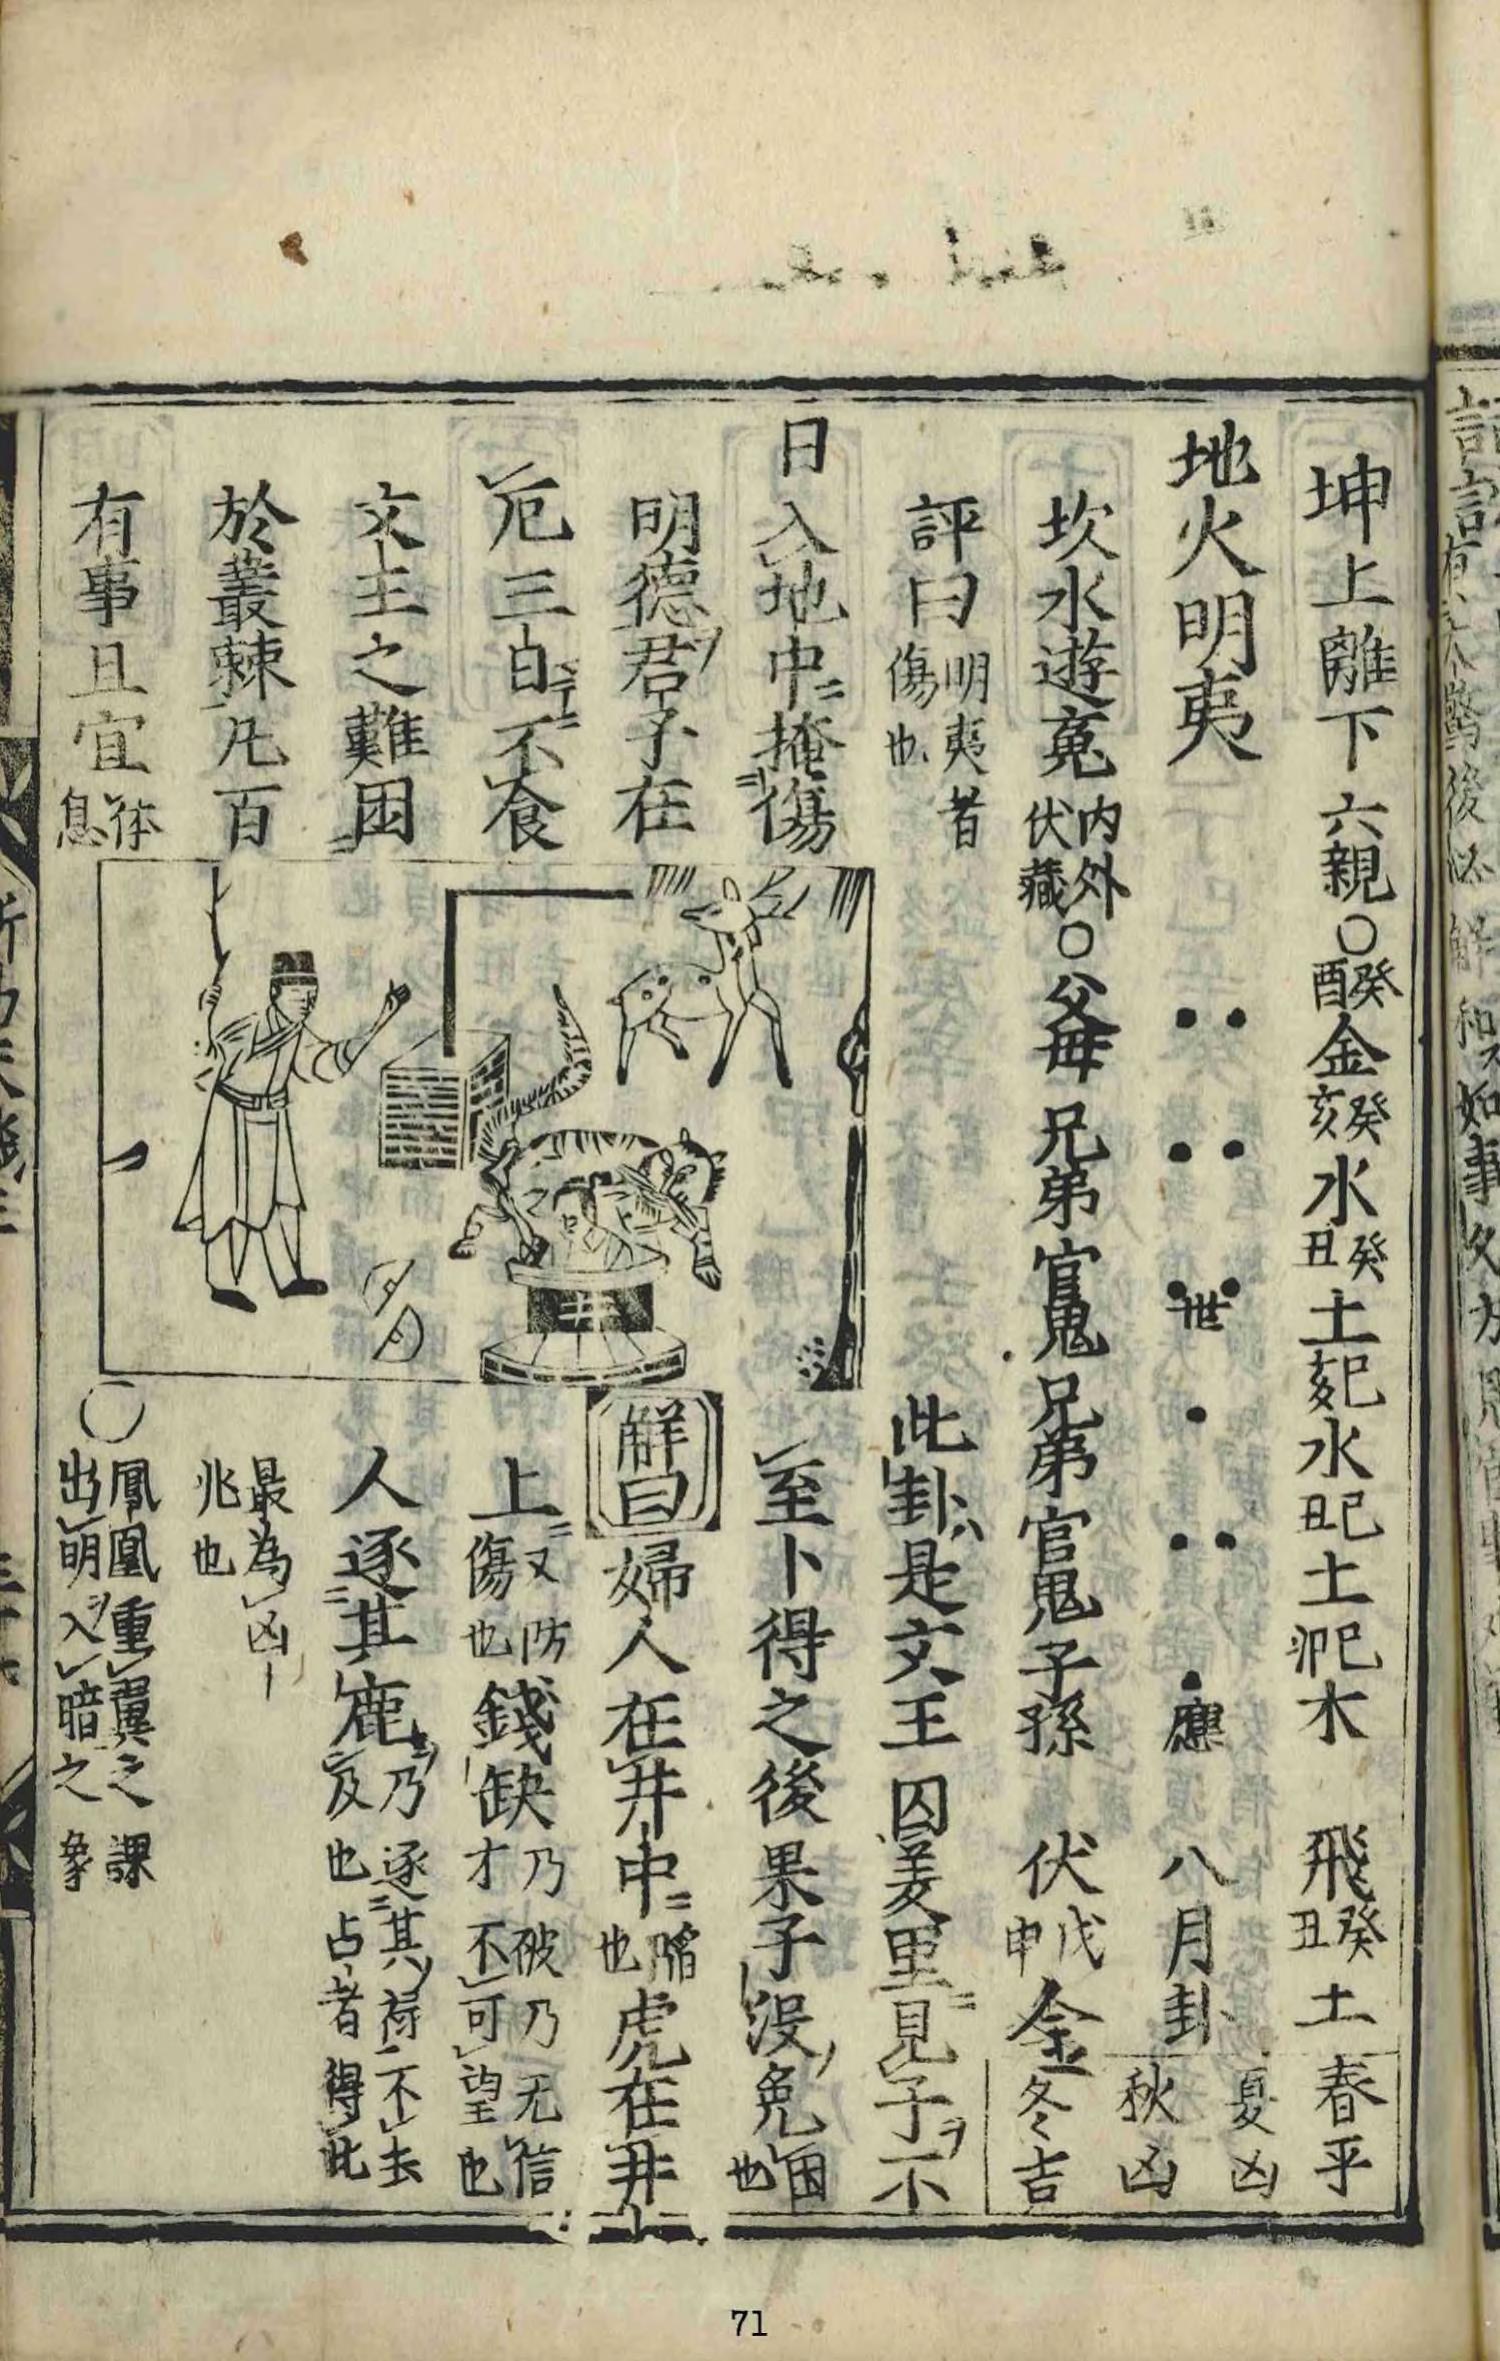 坤上離下 六親○癸酉金癸亥水癸丑土己亥水己丑土己卯木 飛癸丑土 春平
地火明夷 世 應 八月卦 夏凶 秋凶
坎水遊䰟 内外伏藏○父母 兄弟 官鬼 兄弟 官鬼 子孫 伏戊申金 冬吉
評曰 明夷者傷也
日入地中掩傷
明德君子在
厄三日不食
文王之難困
於叢棘凡百
有事且宜 休息
井
此卦是文王囚羑里見子不
至卜得之後果子没免困也
解曰 婦人在井中 陷也 虎在井
上 又防傷也 錢缺 乃破乃无信才不可望也
人逐其鹿 乃逐其禄不去及也占者得此
最為凶兆也
○鳳凰重翼之課出明入暗之象
71